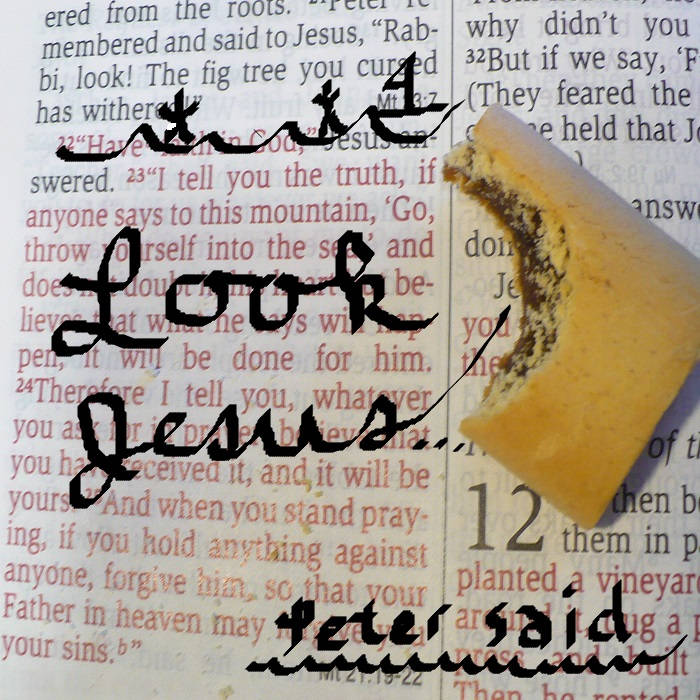 ered from the roots. 21Peter re-
membered and said to Jesus, "Rab-
bi, look! The fig tree you cursed
has withered!"
22"Have faith in God," Jesus an-
swered. 23"I tell you the truth, if
anyone says to this mountain, 'Go,
throw yourself into the sea,' and
does not doubt in his heart but be-
lieves that what he says will hap-
pen, it will be done for him.
24Therefore I tell you, whatever
you ask for in prayer, believe that
you have received it, and it will be
yours. 25And when you stand pray-
ing, if you hold anything against
anyone, forgive him, so that your
Father in heaven may forgive you
your sins.b"
Mt 21:19-22
Look
Jesus...
Peter said
why didn't you
32But if we say, 'F
(They feared the
held that Je
answe
don
Je
you
the
of th
12 then be
them in p
planted a vineyar
around it, dug a p
press and built